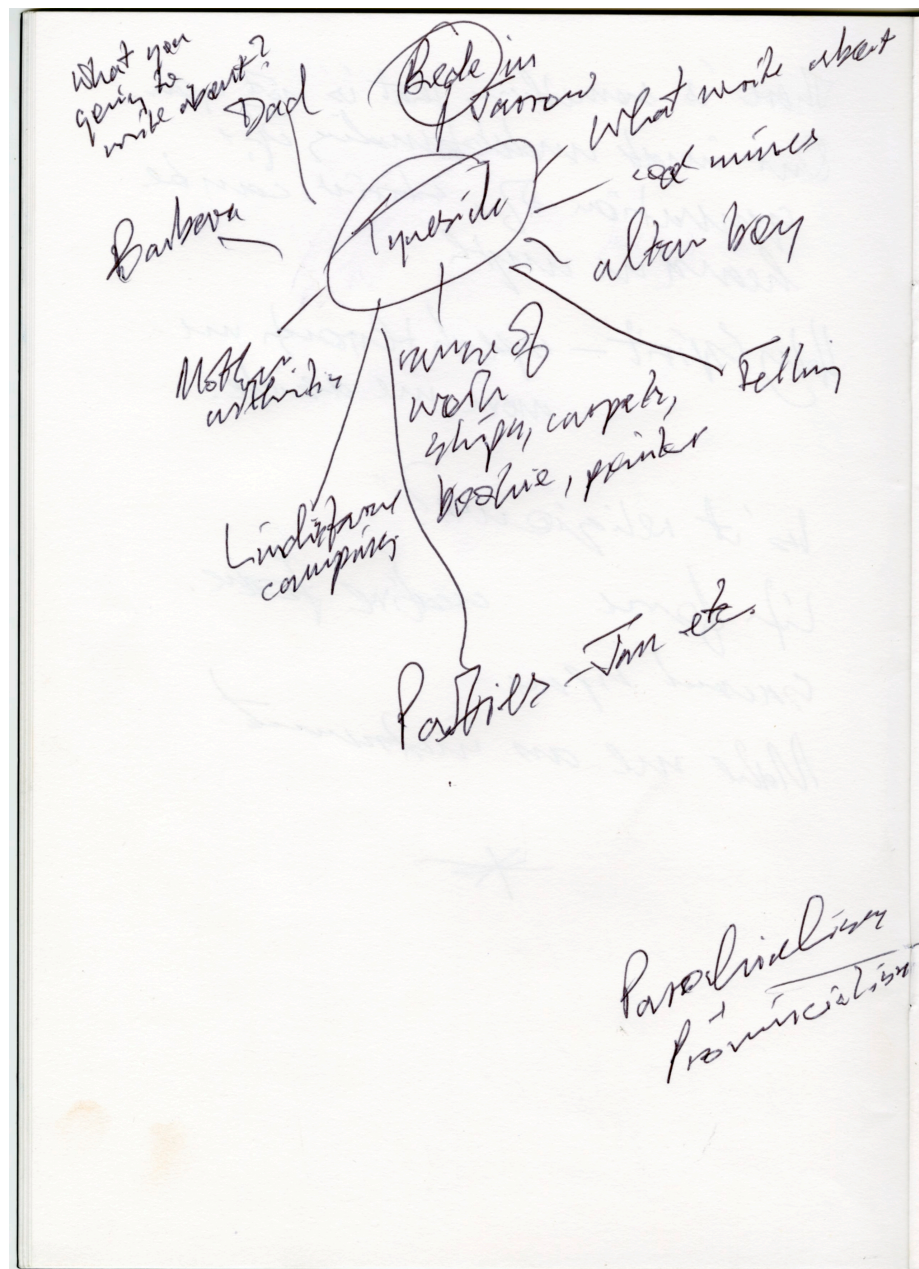 What you
going to
write about?
Dad
Bede in
Jarrow
What write about
coal mines
Tyneside
Barbara
altar boy
Mother
arthritis
sense of
work
ships, carpets,
bookie, printer
Felling
Lindisfarne
camping
Pastries - Jan etc.
Parochialism
Provincialism